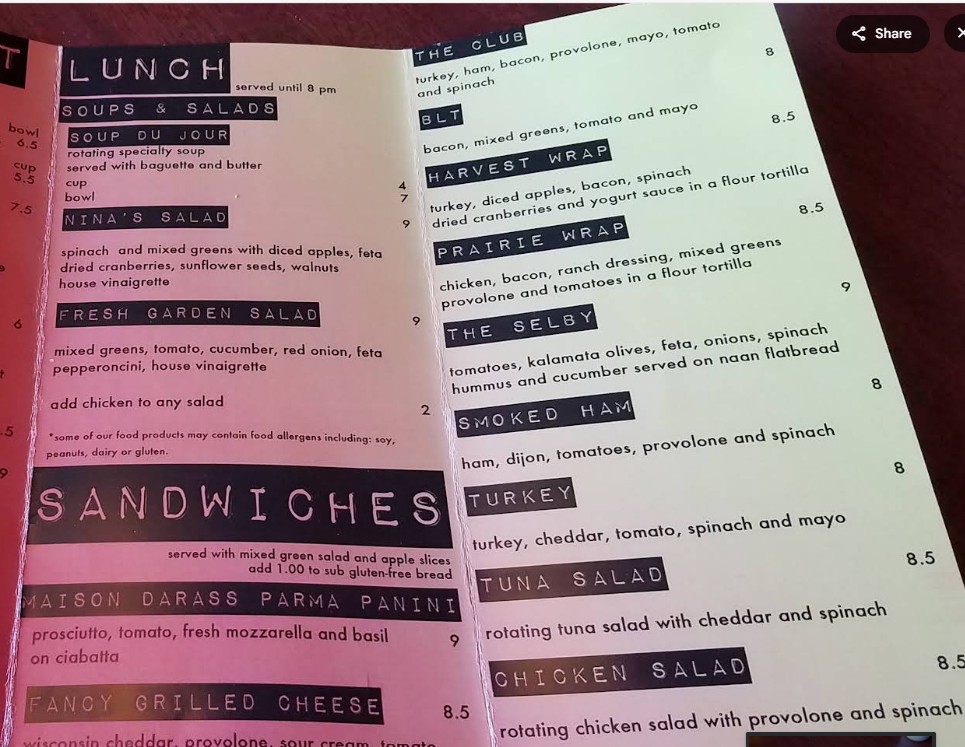 T
bowl
6.5
cup
5.5
7.5
6
.5
9
LUNCH
served until 8 pm
SOUPS & SALADS
SOUP DU JOUR
rotating specialty soup
served with baguette and butter
cup 4
bowl 7
NINA'S SALAD 9
spinach and mixed greens with diced apples, feta
dried cranberries, sunflower seeds, walnuts
house vinaigrette
FRESH GARDEN SALAD 9
mixed greens, tomato, cucumber, red onion, feta
pepperoncini, house vinaigrette
add chicken to any salad 2
*some of our food products may contain food allergens including: soy,
peanuts, dairy or gluten.
SANDWICHES
served with mixed green salad and apple slices
add 1.00 to sub gluten-free bread
MAISON DARASS PARMA PANINI
prosciutto, tomato, fresh mozzarella and basil 9
on ciabatta
FANCY GRILLED CHEESE 8.5
wisconsin cheddar, provolone, sour cream, tomato
THE CLUB
turkey, ham, bacon, provolone, mayo, tomato
and spinach
BLT 8
bacon, mixed greens, tomato and mayo
HARVEST WRAP 8.5
turkey, diced apples, bacon, spinach
dried cranberries and yogurt sauce in a flour tortilla
PRAIRIE WRAP 8.5
chicken, bacon, ranch dressing, mixed greens
provolone and tomatoes in a flour tortilla
THE SELBY 9
tomatoes, kalamata olives, feta, onions, spinach
hummus and cucumber served on naan flatbread
SMOKED HAM 8
ham, dijon, tomatoes, provolone and spinach
TURKEY 8
turkey, cheddar, tomato, spinach and mayo
TUNA SALAD 8.5
rotating tuna salad with cheddar and spinach
CHICKEN SALAD 8.5
rotating chicken salad with provolone and spinach
Share